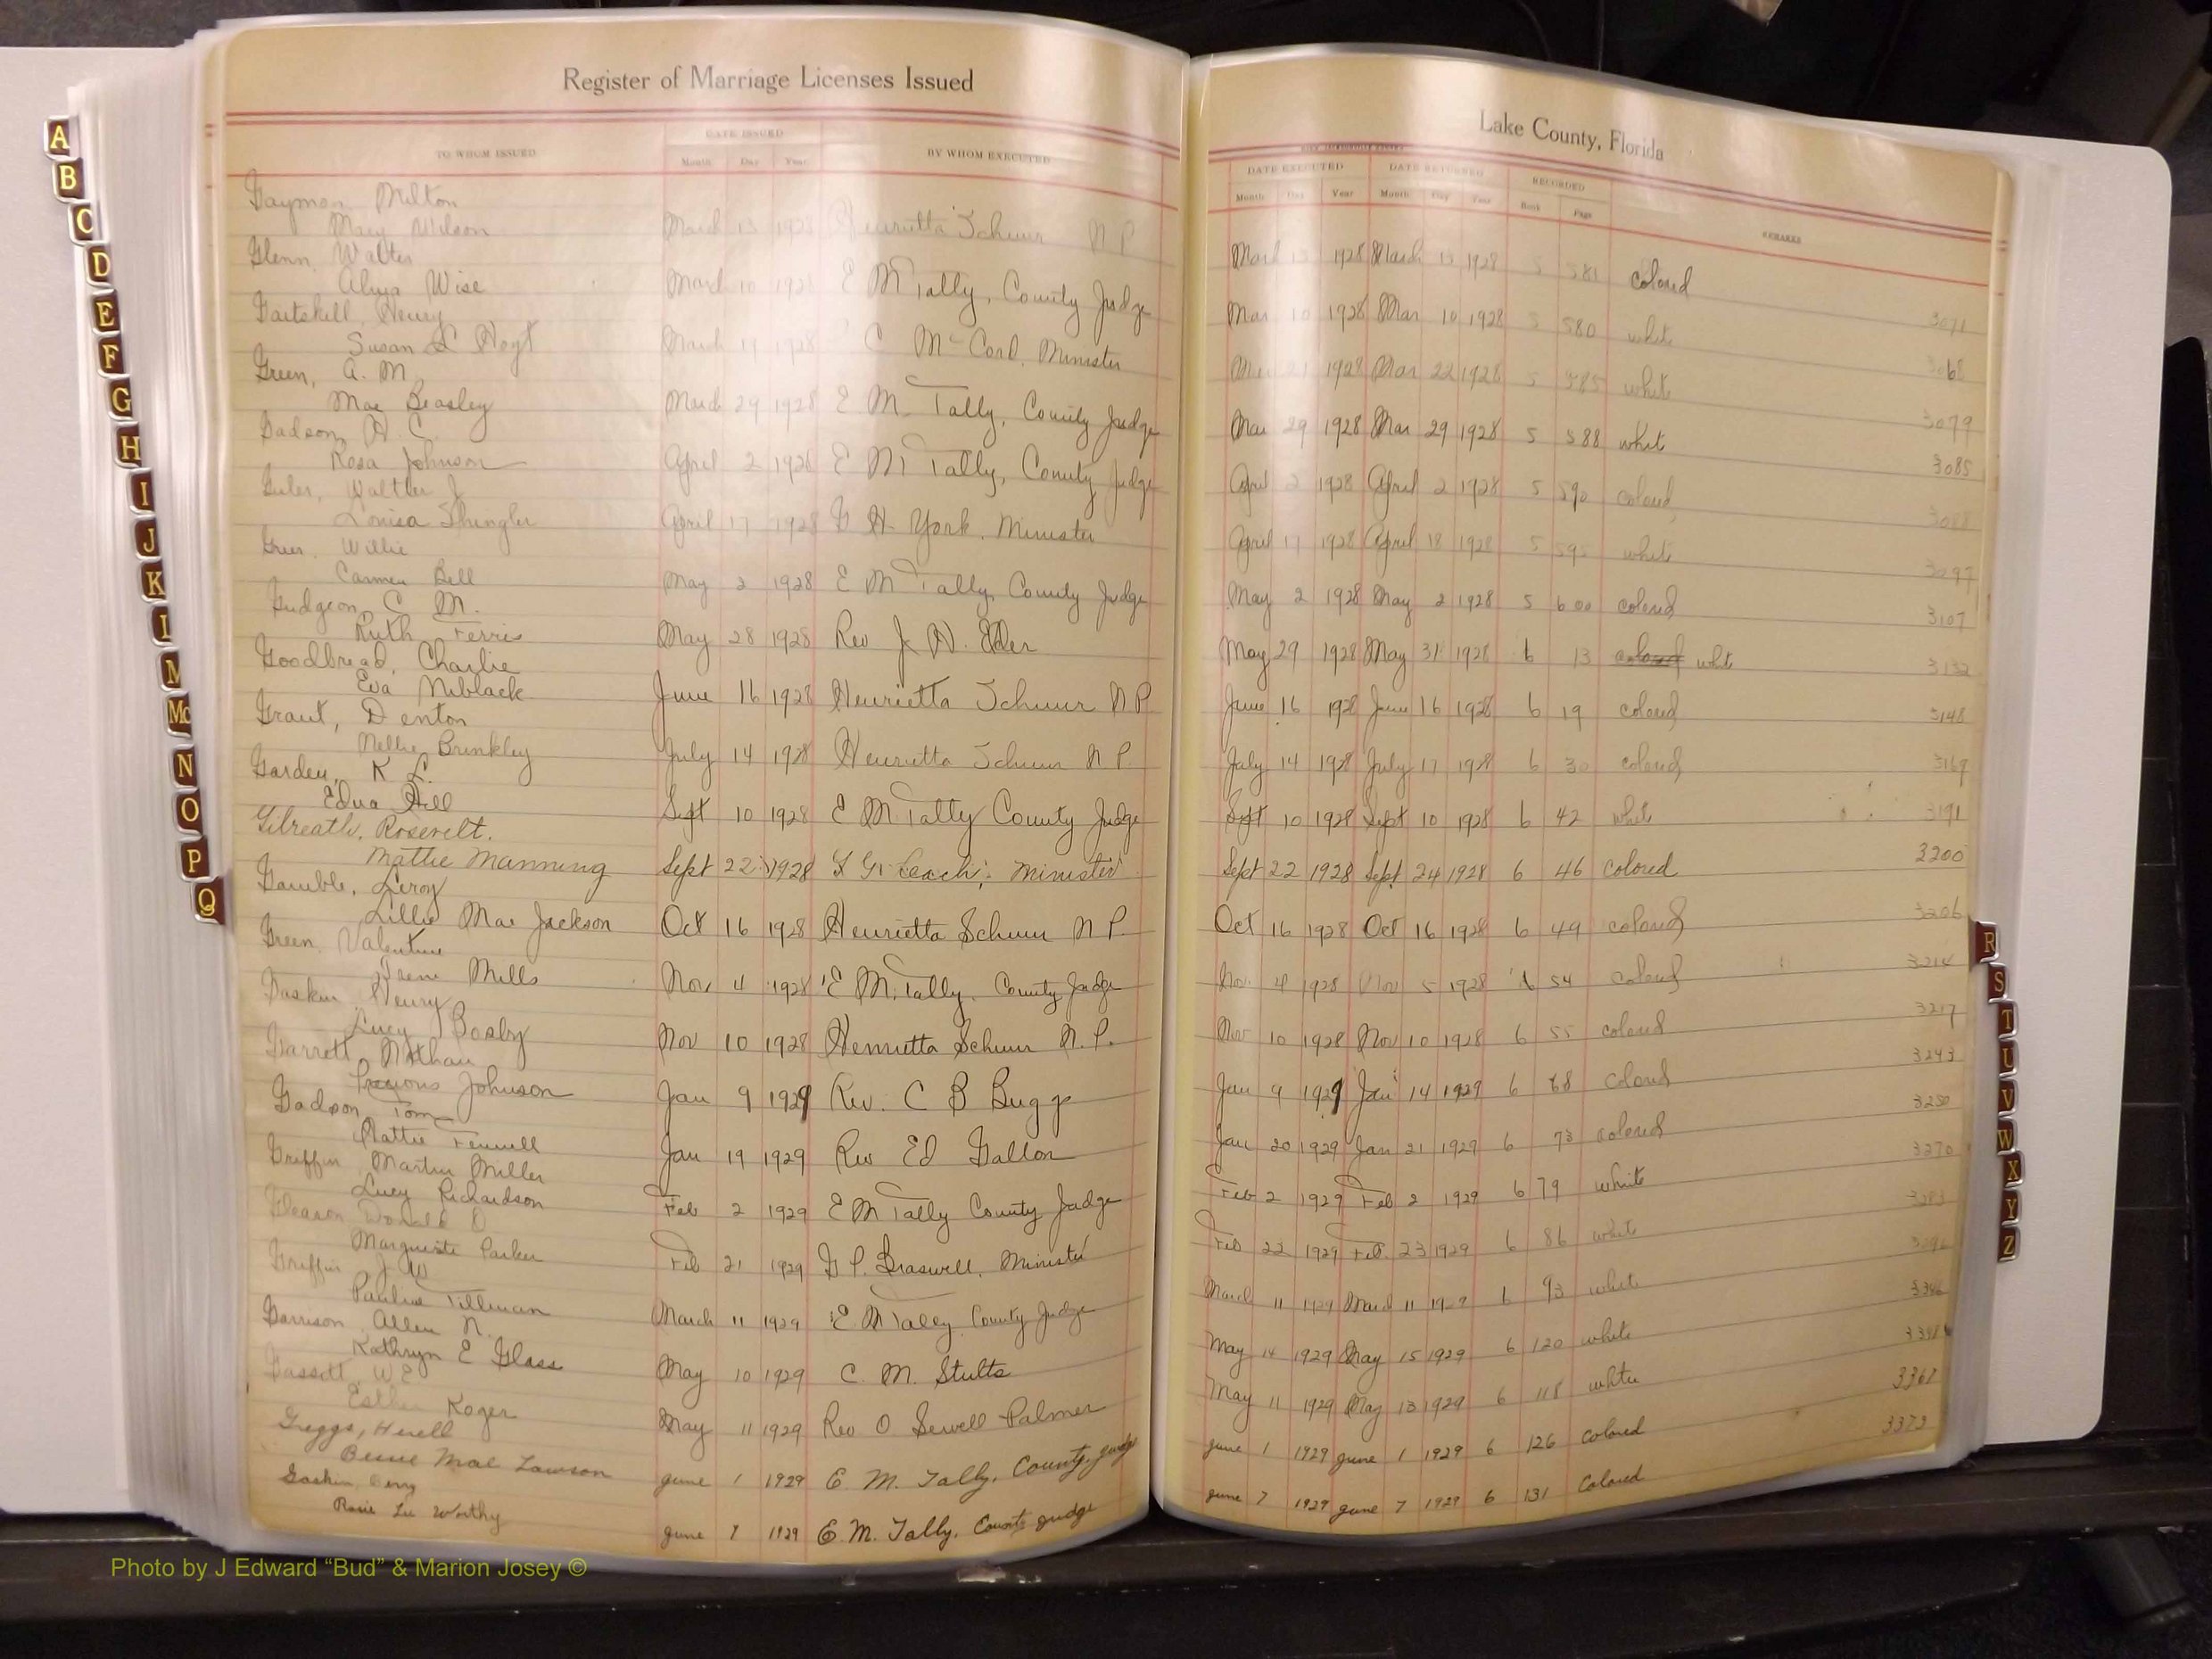 Register of Marriage Licenses Issued
Lake County, Florida
TO WHOM ISSUED DATE ISSUED BY WHOM EXECUTED
Month Day Year
DATE EXECUTED DATE RETURNED RECORDED REMARKS
Month Day Year Month Day Year Book Page
Gaymon, Milton
Mary Wilson March 13 1928 Henrietta Schuur N P March 13 1928 March 13 1928 5 581 colored
Glenn, Walter
Wise March 10 1928 E M Tally, County Judge Mar 10 1928 Mar 10 1928 5 580 white 3071
Henry
Susan L Hoyt March 1928 C McCord, Minister 1928 Mar 22 1928 5 585 white
Green, A. M.
Mae Beasley March 29 1928 E M. Tally, County Judge Mar 29 1928 Mar 29 1928 5 588 white 3079
Gadson, H. C.
Rosa Johnson April 2 1928 E M Tally, County Judge April 2 1928 April 2 1928 5 590 colored 3085
Louisa Shingler April 17 1928 G H York, Minister April 17 1928 April 18 1928 5 595 white
Willie
Carmen Bell May 2 1928 E M Tally, County Judge May 2 1928 May 2 1928 5 600 colored 3097
Gudgeon, C M.
Ruth Ferris May 28 1928 Rev J. H. May 29 1928 May 31 1928 6 13 colored white 3107
Goodbread, Charlie
Eva Niblack June 16 1928 Henrietta Schuur N P June 16 1928 June 16 1928 6 19 colored 3132
Grant, Denton
Nellie Brinkley July 14 1928 Henrietta Schuur N P. July 14 1928 July 17 1928 6 30 colored 3148
Garden, K L.
Edna Hill Sept 10 1928 E M Tally County Judge Sept 10 1928 Sept 10 1928 6 42 white 3169
Gilreath, Rosevelt.
Mattie Manning Sept 22 1928 Leach, Minister Sept 22 1928 Sept 24 1928 6 46 colored 3191
Gamble, Leroy
Lillie Mae Jackson Oct 16 1928 Henrietta Schuur N P. Oct 16 1928 Oct 16 1928 6 49 colored 3200
Green, Valentine
Irene Mills Nov 4 1928 E M. Tally, County Judge Nov 4 1928 Nov 5 1928 6 54 colored 3206
Gaskin Henry
Lucy Bosby Nov 10 1928 Henrietta Schuur N. P. Nov 10 1928 Nov 10 1928 6 55 colored 3214
Garrett, Nathan
Precious Johnson Jan 9 1929 Rev. C B Buggs Jan 9 1929 Jan 14 1929 6 68 colored 3217
Gadson, Tom
Mattie Fennell Jan 19 1929 Rev Ed Gallon Jan 20 1929 Jan 21 1929 6 73 colored 3243
Griffin, Martin Miller
Lucy Richardson Feb 2 1929 E M Tally County Judge Feb 2 1929 Feb 2 1929 6 79 white 3250
Gleason, Donald D
Marguerite Parker Feb 21 1929 G P. Braswell, Minister Feb 22 1929 Feb. 23 1929 6 86 white 3270
Griffin J. W
Pauline Tillman March 11 1929 E M Tally County Judge March 11 1929 March 11 1929 6 93 white 3283
Garrison, Allen N.
Kathryn E Glass May 10 1929 C. M. Stults May 14 1929 May 15 1929 6 120 white
Gassett, W E
Esther Koger May 11 1929 Rev O Sewell Palmer May 11 1929 May 13 1929 6 118 white 3346
Greggs, Herell
Bessie Mae Lawson June 1 1929 E. M. Tally, County Judge June 1 1929 June 1 1929 6 126 Colored 3367
Gaskin,
Rosie Lee Worthy June 7 1929 E. M. Tally, County Judge June 7 1929 June 7 1929 6 131 Colored 3373
A
B
C
D
E
F
G
H
I
J
K
M
Mc
N
O
P
Q
R
S
T
U
V
W
X
Y
Z
Photo by J Edward “Bud” & Marion Josey ©